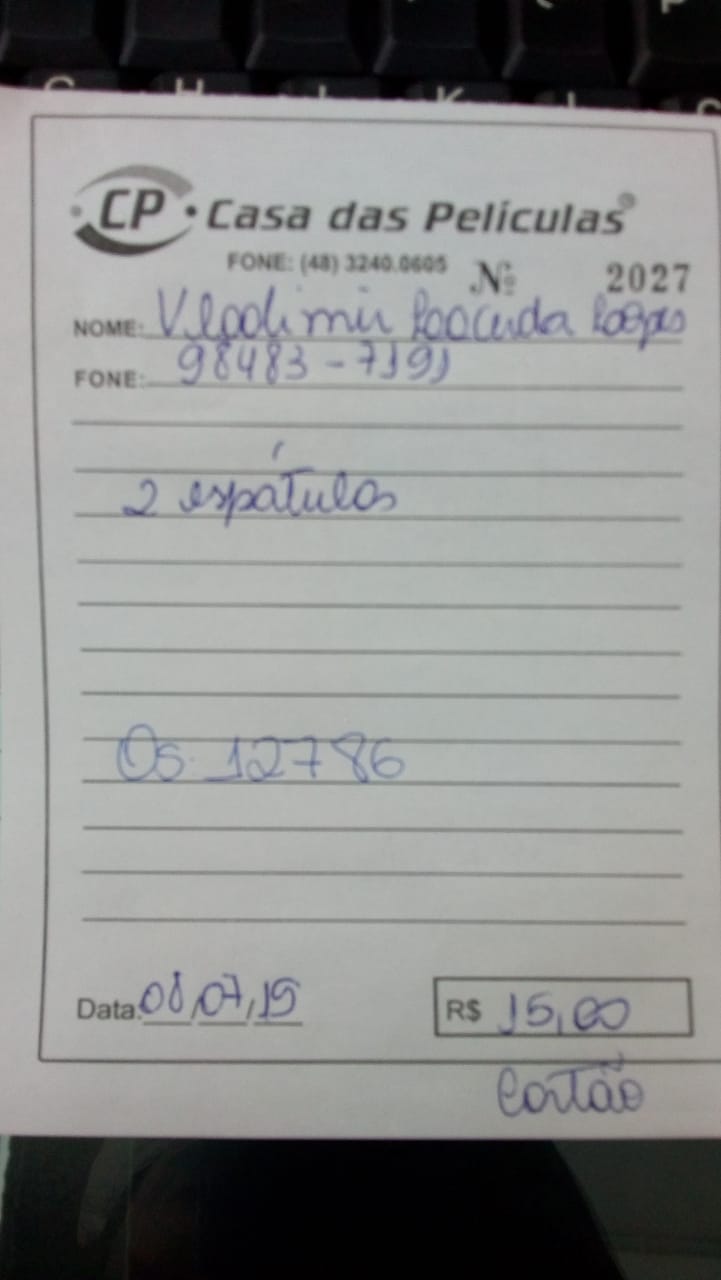 CP · Casa das Películas®
FONE: (48) 3240.0605 Nº 2027
NOME: Vladimir
FONE: 98483-7191
2 espátulas
Os. 12786
Data: 08/07/19 R$ 15,00
Cartão